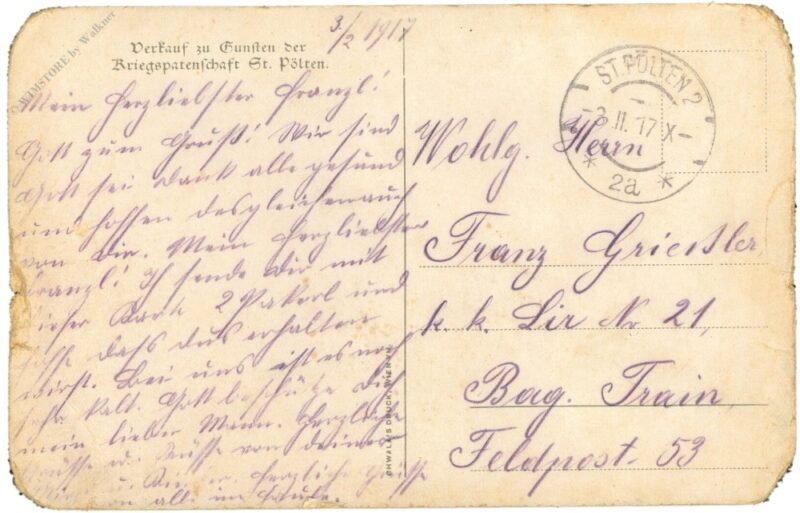 HEIMSTORE by Walkner
3/2 1917
Verkauf zu Gunsten der
Kriegspatenschaft St. Pölten.
Mein herzliebster Franzl!
Gott zum Gruß! Wir sind
Gott sei dank alle gesund
und hoffen desgleichen auch
von Dir. Mein herzliebster
Franzl! Ich sende Dir mit
dieser Karte 2 Pakerl und
hoffe dass dus erhalten
wirst. Bei uns ist es noch
sehr kalt. Gott beschütze Dich
mein lieber Mann. Herzliche
Grüsse u. Küsse von deiner
herzliche Grüsse
von alle im Hause.
ST. PÖLTEN 2
-3.II.17.X-
* 2a *
Wohlg. Herrn
Franz Griessler
k. k. Lir Nr 21,
Bag. Train,
Feldpost 53